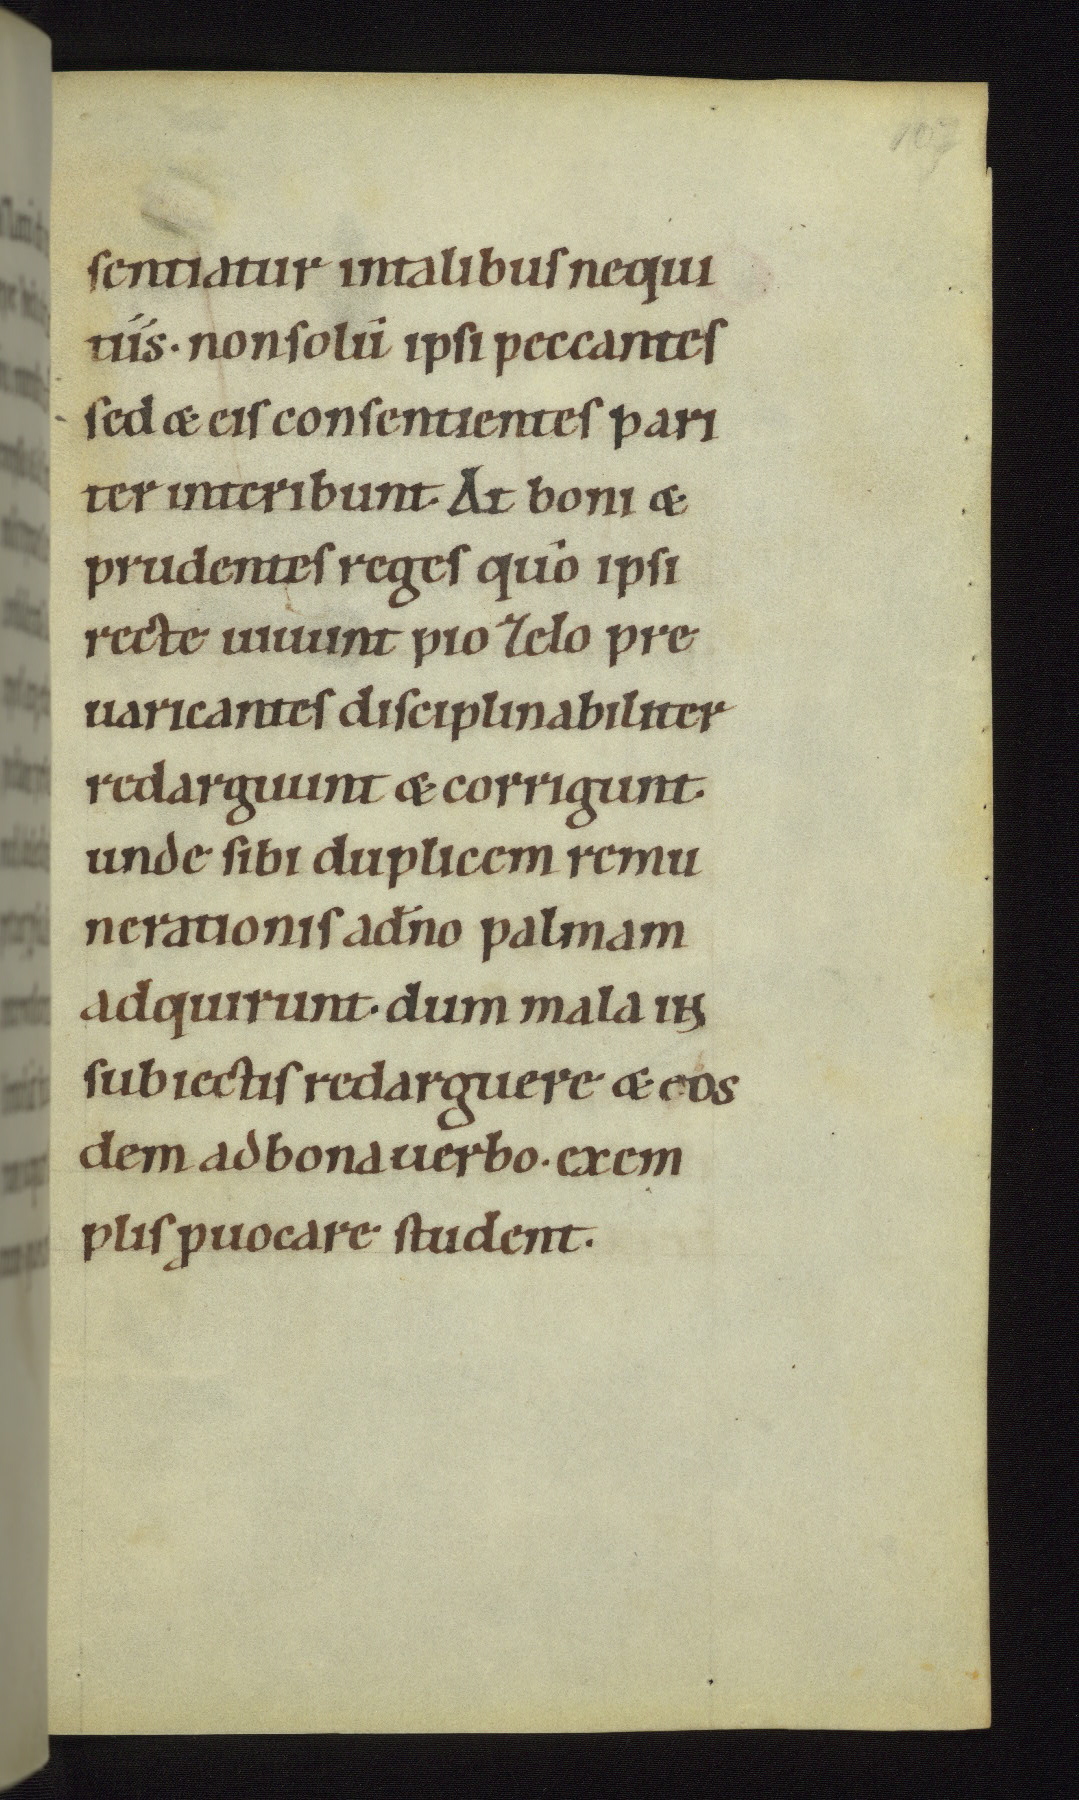 107
sentiatur intalibus nequi
tiis· nonsolū ipsi peccantes
sed & eis consentientes pari
ter interibunt· At boni &
prudentes reges quo ipsi
recte uiuunt pio zelo pre
uaricantes disciplinabiliter
redarguunt & corrigunt·
unde sibi duplicem remu
nerationis ad̄no palmam
adquirunt· dum mala in
subiectis redarguere & eos
dem adbona uerbo· exem
plis ꝓuocare student·